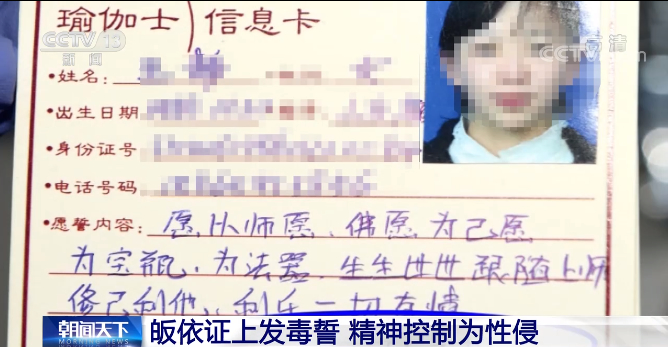 CCTV 13
新闻
高清
瑜伽士)信息卡
•姓名:
•出生日期
•身份证号
•电话号码
•愿誓内容: 愿以师愿、佛愿为己愿
为宝瓶,为法器,生生世世跟随上师
修己利他,利乐一切有情
朝闻天下
皈依证上发毒誓 精神控制为性侵